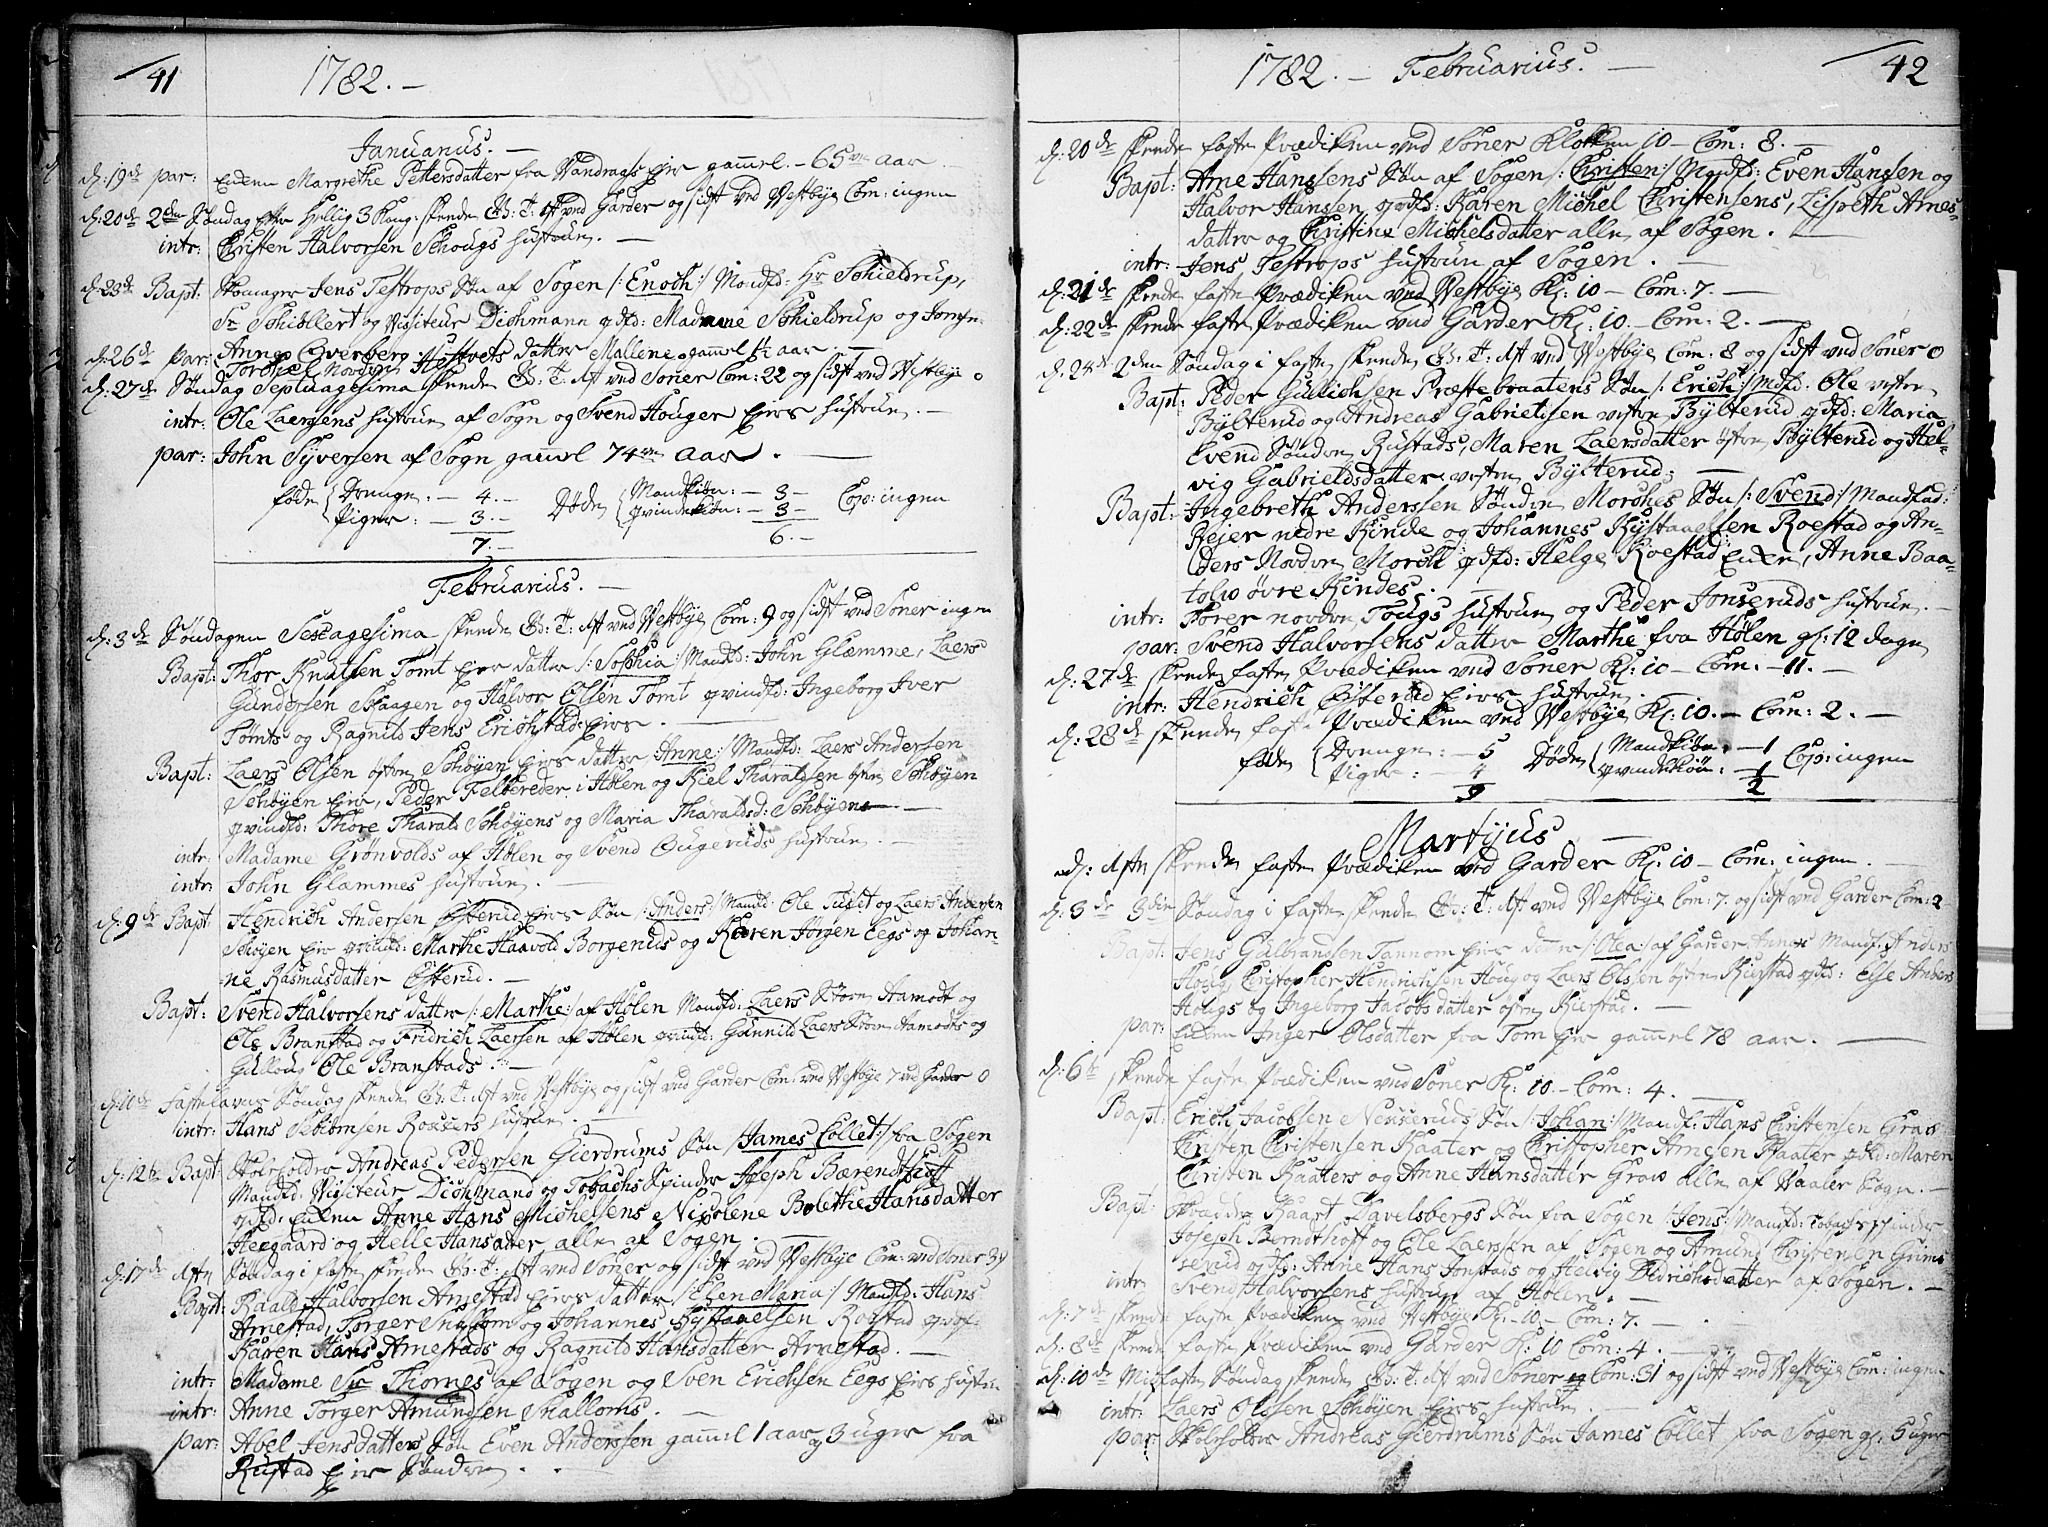 41
1782. —
Januarius. —
d: 19de par: Enken Margrethe Pettersdatter fra Vandrags Eier gammel — 65ve aar
d: 20de 2den Søndag efter Hellig 3 Kong: skeede Gd: T: 1st ved Garder og sidst ved Westbye Com: ingen
intr: Christen Halvorsen Schougs hustrue. —
d: 23de Bapt: Skomager Jens Testrops Søn af Sogen /: Enoch :/ Mandf: Hr Schieldrup,
Sr Schiøllert og Visiteur Dichmann qdf: Madame Schieldrup og Jomfr:
Anne Overberg
d: 26de par: Torchel Nordre Hostvets datter Mallene gammel ½ aar. —
d: 27de Søndag Septuagesima skeede Gd: T: 1st ved Soner Com: 22 og sidst ved Westbye 0
intr: Ole Laersens hustrue af Sogn og Svend Houger Eiers hustrue. —
par: John Syversen af Sogn gammel 74ve aar. —
føde { Drenge: — 4. — Døde { Mandkiøn: — 3 — Cop: ingen
Piger: — 3. — qvindekiøn: — 3 —
7. — 6. —
Februarius. —
d: 3de Søndagen Sexagesima skeede Gd: T: 1st ved Westbye Com: 9 og sidst ved Soner ingen
Bapt: Thor Knutsen Tomt Eier datter /: Sophia :/ Mandf: John Glæmme, Laers
Gundersen Skaagen og Halvor Olsen Tomt qvindf: Ingeborg Iver
Tomts og Ragnild Jens Erichstad Eiers. —
Bapt: Laers Olsen østre Schøyen Eiers datter /: Anne :/ Mandf: Laers Andersen
Schøyen Eier, Peder Felbereder i Hølen og Kiel Tharaldsen østre Schøyen
qvindf: Thore Tharald Schøyens og Maria Tharaldsd: Schøyen —
intr: Madame Grønvolds af Hølen og Svend Ougeruds hustrue. —
intr: John Glæmmes hustrue. —
d: 9de Bapt: Hendrich Andersen Østerud Eiers Søn /: Anders :/ Mandf: Ole Tuset og Laers Andersen
Schøyen Eier qvindf: Marthe Haavold Borgeruds og Karen Jørgen Eegs og Johan-
ne Rasmusdatter Østerud. —
Bapt: Svend Halvorsens datter /: Marthe :/ af Hølen Mandf: Laers Støren Aamodt og
Ole Branstad og Fridrich Laersen af Hølen qvindf: Gunnild Laers Støren Aamodts og
Gulloug Ole Branstads. —
d: 10de Fastelavns Søndag skeede Gd: T: 1st ved Westbye og sidst ved Garder Com: ved Westbye 7 ved Garder 0
intr: Hans Sebiømsen Rossers hustrue. —
d: 12te Bapt: Skoleholder Andreas Pedersen Gierdrums Søn /: James Collet :/ fra Sogen
Mandf: Visiteur Dichmand og Tobachs Spinder Joseph Bærendtsoft
qdf: Enken Anne Hans Michelsens Nicolene Bolethe Hansdatter
Heegaard og Helle Hansdatter alle af Sogen. —
d: 17de 1ste Søndag i faste skeede Gd: T: 1st ved Soner og sidst ved Westbye Com: ved Soner 34
Bapt: Raald Halvorsen Arnestad Eiers datter /: Elen Maria :/ Mandf: Hans
Arnestad, Torger Snallom og Johannes Kystanelsen Roestad qvindf:
Karen Hans Arnestads og Ragnild Hansdatter Arnestad. —
intr: Madame Sr Thornes af Sogen og Sven Erichsen Eegs Eiers hustrue
intr: Anne Torger Amundsen Snalloms. —
par: Abel Jensdatters Søn Even Anderssen gammel 1 aar og 3 uger fra
Rustad Eier Søndre. —
42
1782. — Februarius. —
d: 20de skeede faste Prædiken ved Soner Klokken 10 — Com: 8. —
Bapt: Arne Hanssens Søn af Sogen /: Christen :/ Mandf: Even Hanssen og
Halvor Hansen qvdf: Karen Michel Christensens, Lispeth Arnes-
datter og Christine Michelsdatter alle af Sogen. —
intr: Jens Testrops hustrue af Sogen. —
d: 21de skeede faste Prædiken ved Westbye Kl: 10 — Com: 7. —
d: 22de skeede faste Prædiken ved Garder Kl: 10 — Com: 2. —
d: 24de 2den Søndag i faste skeede Gd: T: 1st ved Westbye Com: 8 og sidst ved Soner 0
Bapt: Peder Gullichsen Præstebraatens Søn /: Erich :/ Mdf: Ole vestre
Bylterud og Andreas Gabrielsen vestre Bylterud qdf: Maria
Evend Søndre Rustads, Maren Laersdatter østre Bylterud og Hel-
vig Gabrielsdatter vestre Bylterud. —
Bapt: Ingebreth Anderssen Søndre Morches Søn /: Svend :/ Mandfad:
Reier nedre Kinde og Johannes Kystanelsen Roestad og An-
ders Nordre Morch qdf: Helge Roestad Enken, Anne Baa-
tolv øvre Kindes. —
intr: Torer nordre Tougs hustrue og Peder Jonseruds hustrue.
par: Svend Halvorsens datter Marthe fra Hølen gl: 12 dage
d: 27de skeede faste Prædiken ved Soner Kl: 10 — Com. — 11. —
intr: Hendrich Østerud Eiers hustrue.
d: 28de skeede faste Prædiken ved Westbye Kl: 10. — Com: 2. —
føde { Drenge: — 5 Døde { Mandkiøn: — 1 Cop: ingen
Piger: — 4 qvindekiøn: — 1
9 2
Martijus —
d: 1ste skeede faste Prædiken ved Garder Kl: 10 — Com: ingen. —
d: 3de 3die Søndag i faste skeede Gd: T: 1st ved Westbye Com: 7. og sidst ved Garder Com: 2
Bapt: Jens Gulbrandsen Tannom Eiers datter /: Olea :/ af Garder Annex Mandf: Anders
Houg, Christopher Hendrichsen Houg og Laers Olssen østre Rustad qdf: Else Anders
Hougs og Ingeborg Jacobsdatter østre Rustad. —
par: Enken Inger Olsdatter fra Tom Eier gammel 78 aar. —
d: 6te skeede faste Prædiken ved Soner Kl: 10. — Com: 4. —
Bapt: Erich Jacobsen Nesseruds Søn /: Johan :/ Mandf: Hans Christensen Grav
Christen Christensen Kaater og Christopher Arnesen Kaater qdf: Maren
Christen Kaaters og Anne Hansdatter Grav alle af Vaaler Sogn. —
Bapt: Skrædder Kaart Davelsbergs Søn fra Sogen /: Jens :/ Mandf: Tobach spinder
Joseph Berndtsoft og Ole Laerssen af Sogen og Amund Christensen Grims-
serud qdf: Anne Hans Jonstads og Helvig Didrichsdatter af Sogen. —
intr: Svend Halvorsens hustrue af Hølen. —
d: 7de skeede faste Prædiken ved Westbye Kl: 10 — Com: 7. —
d: 8de skeede faste Prædiken ved Garder Kl: 10 Com: 4. —
d: 10de Midfaste Søndag skeede Gd: T: 1st ved Soner Com: 31 og sidst ved Westbye Com: ingen
intr: Laers Olssen Schøyen Eiers hustrue. —
par: Skoleholder Andreas Gierdrums Søn James Collet fra Sogen gl: 3 uger